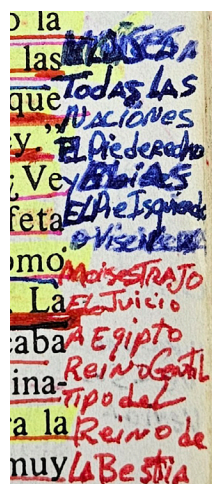 o la
las
que
y.”,
¿Ve
feta
omo
La
caba
ina-
ra la
muy
Todas LAS
NACIONES
EL Pie derecho
y
EL Pie Isquierdo
Moises TRAJO
EL Juicio
A Egipto
Reino Gentil
Tipo del
Reino de
LA Bestia